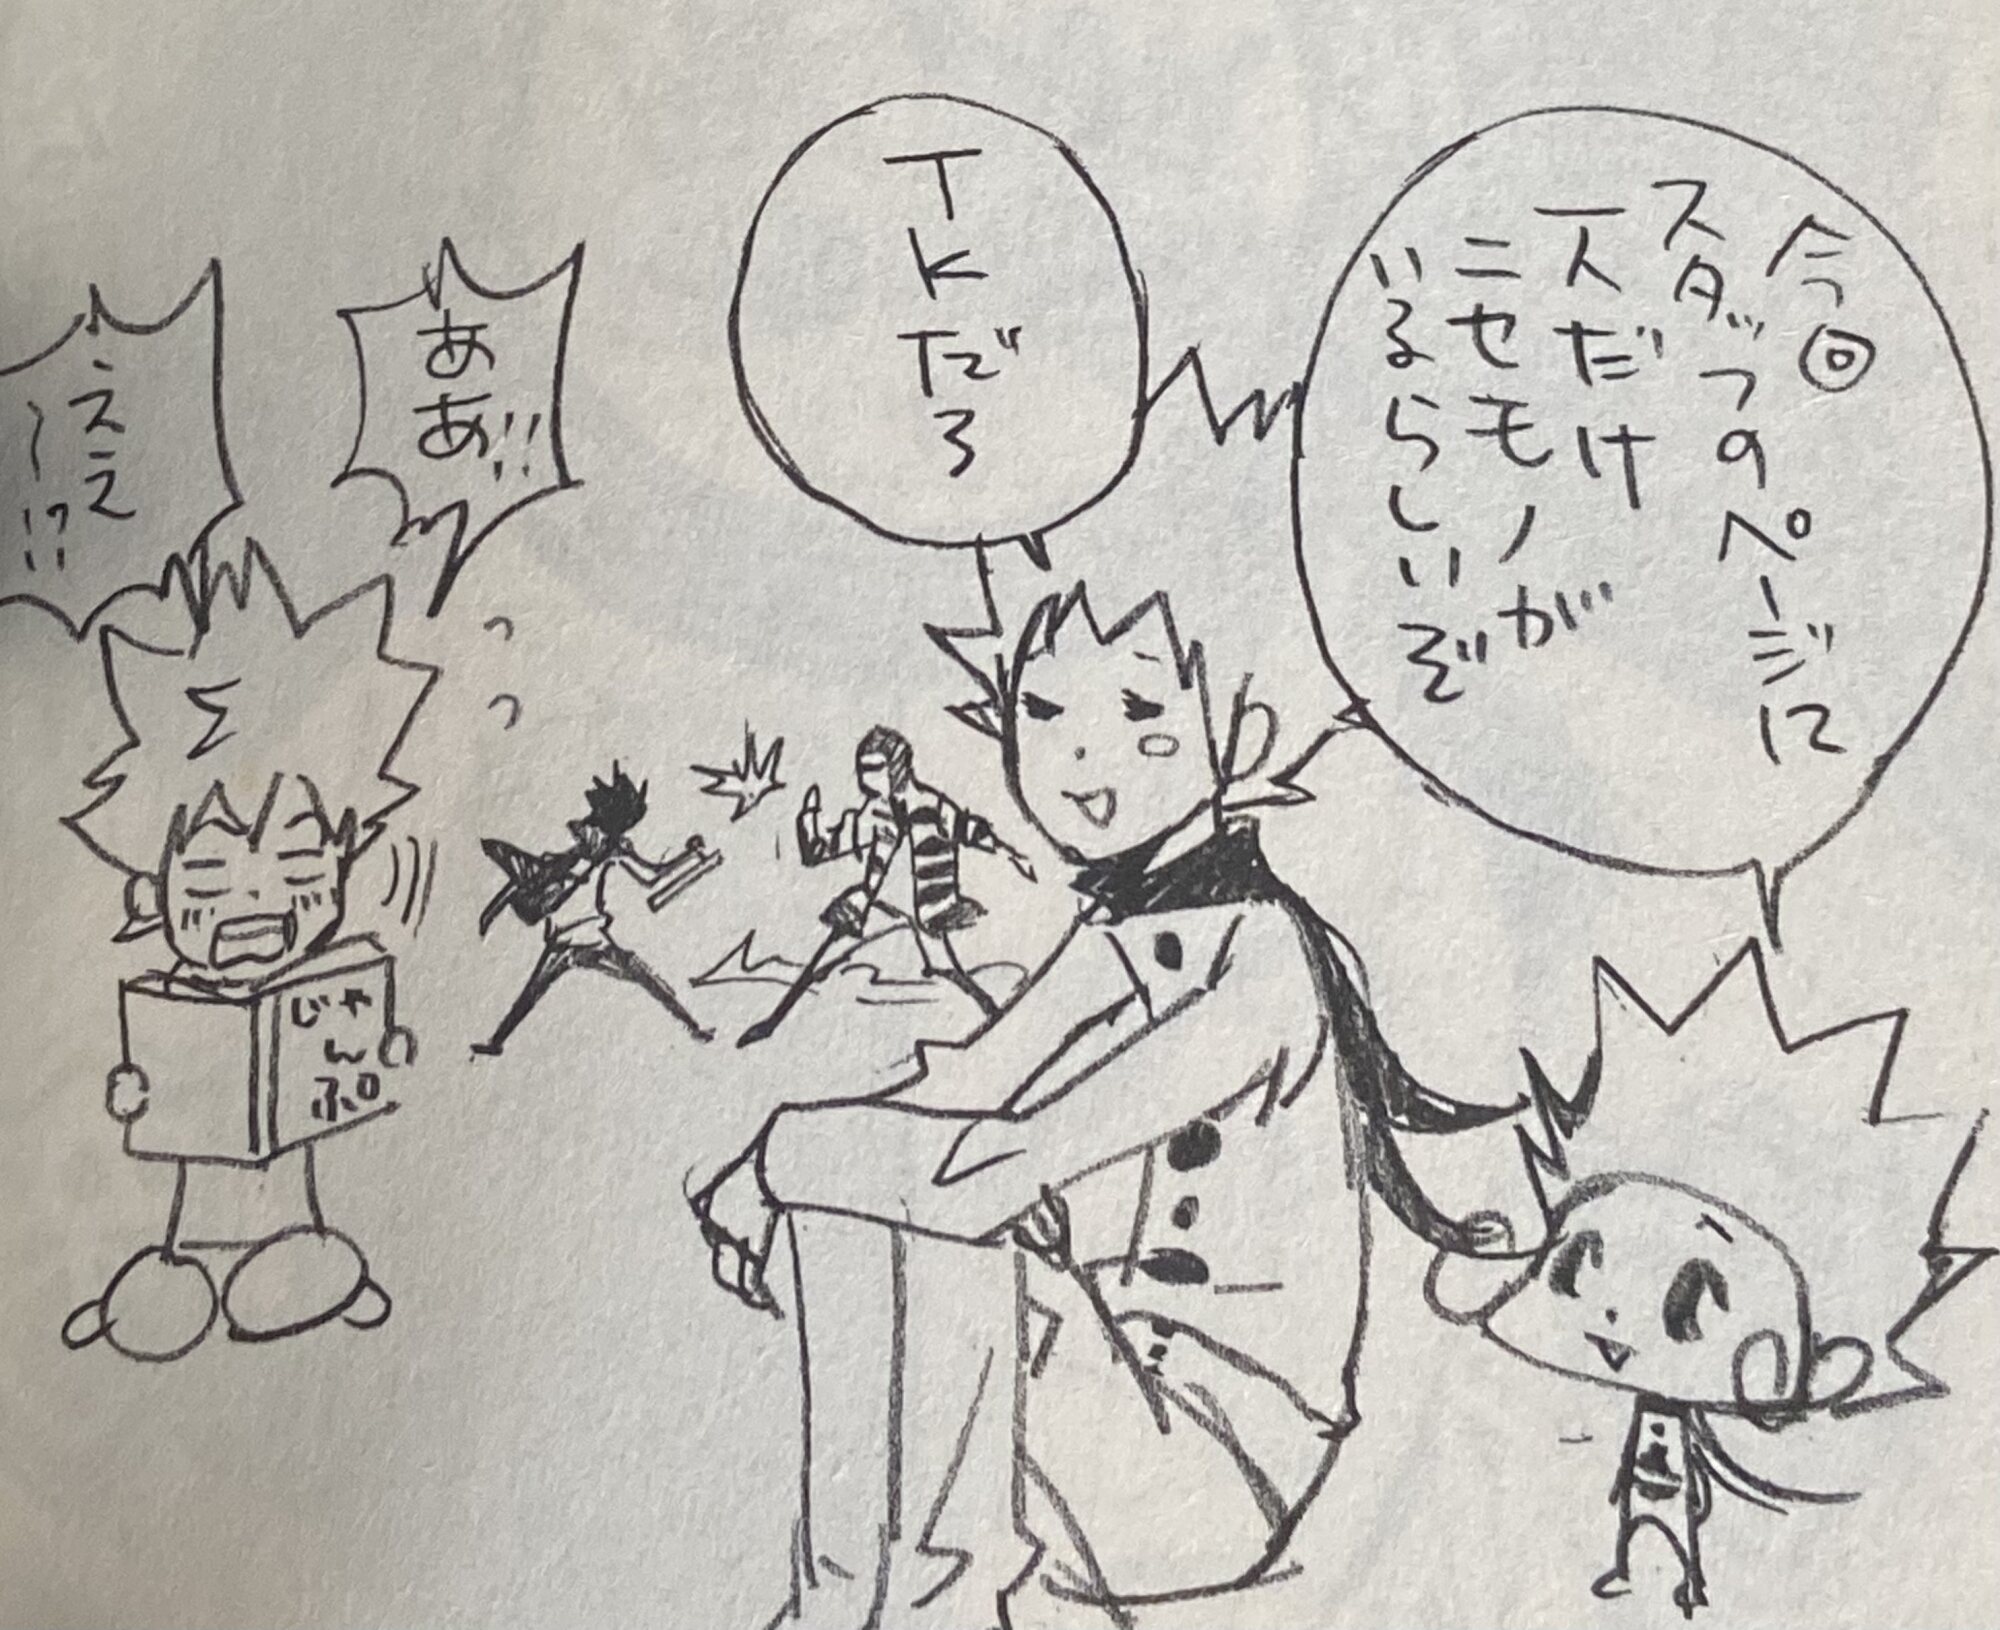 今回
スタッフのページに
一人だけ
ニセモノが
いるらしいぞ
TKだろ
ああ!!
じゃ
ん
ぷ